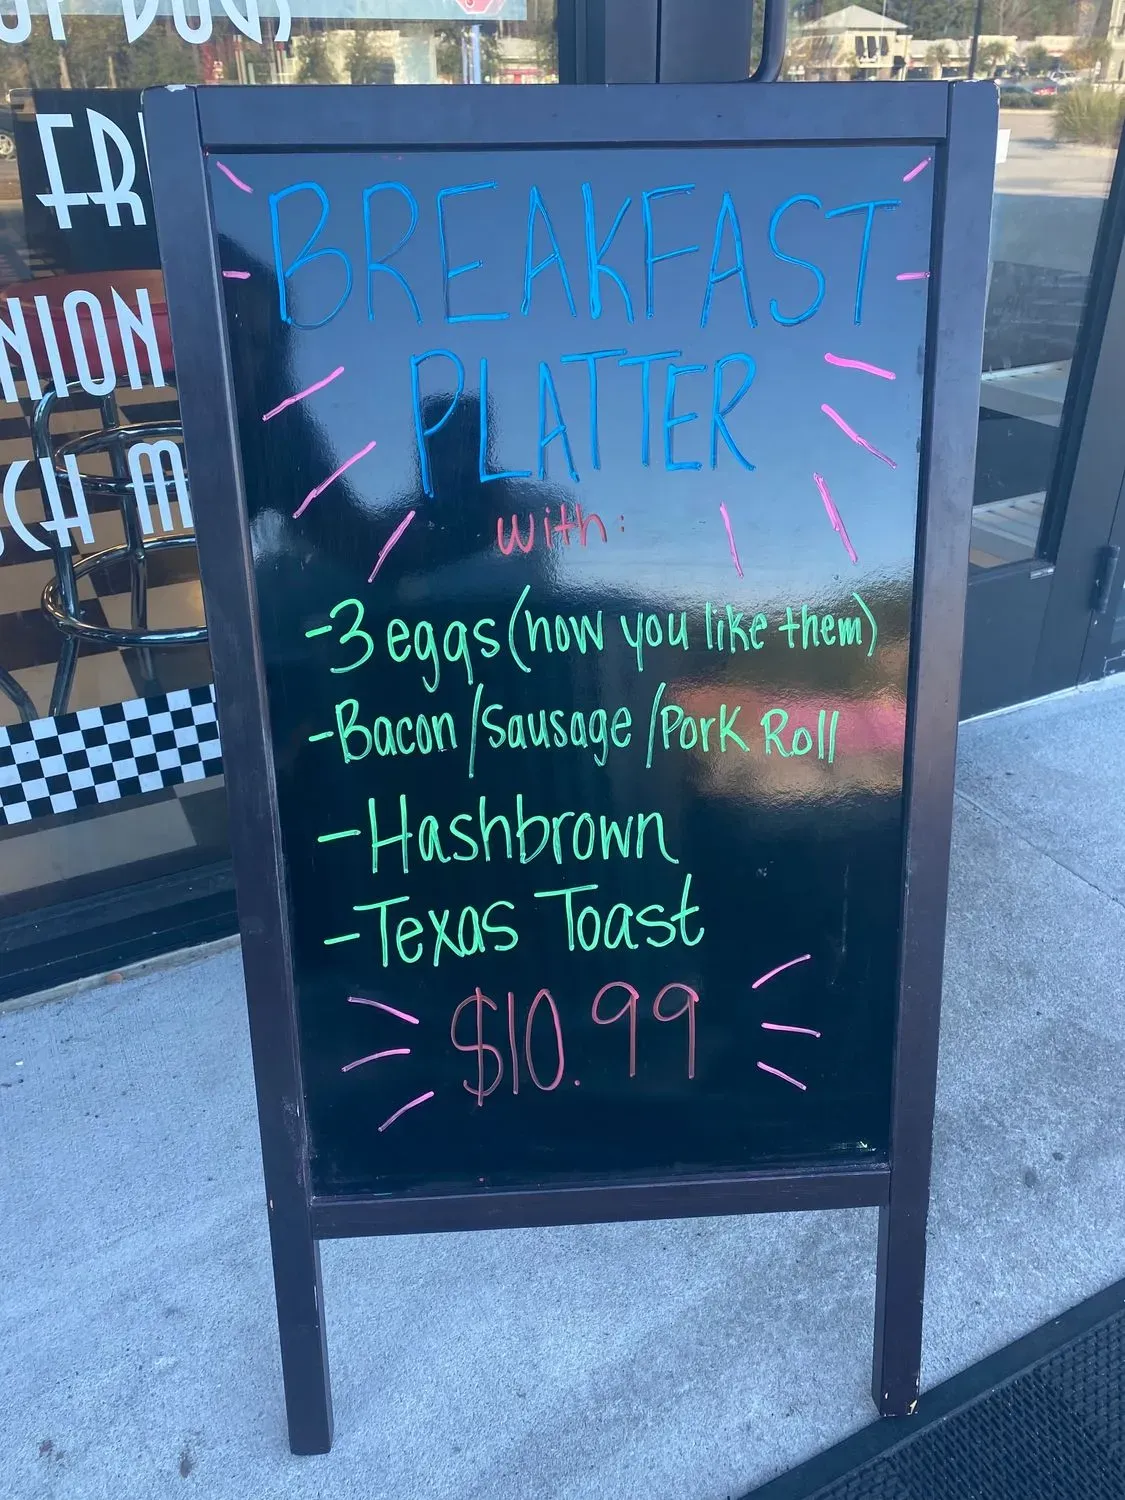 BREAKFAST
PLATTER
with:
-3 eggs (how you like them)
-Bacon/Sausage/Pork Roll
-Hashbrown
-Texas Toast
$10.99